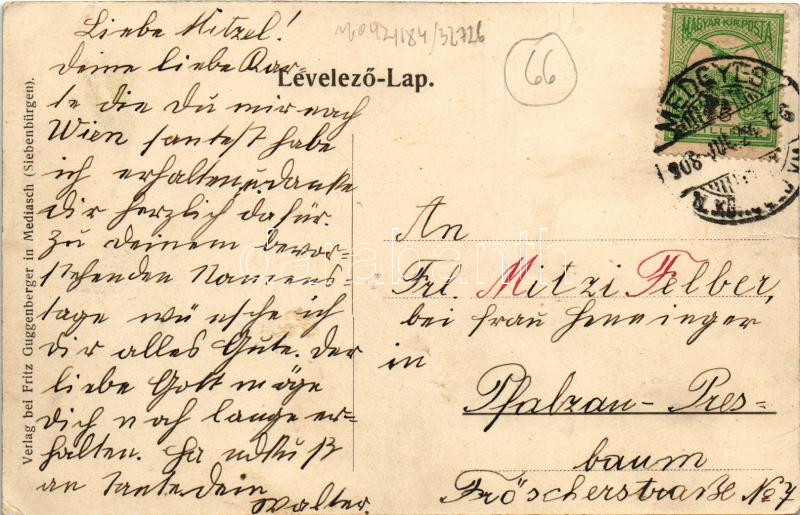 Liebe Mitzel!
Deine liebe Kar-
te die du mir nach
Wien santest habe
ich erhalten u. danke
dir herzlich dafür.
Zu deinem bevor-
stehenden Namens-
tage wünsche ich
dir alles Gute. Der
liebe Gott möge
dich noch lange er-
halten. Ha ndkuß
an Tante dein
Walter.
Levelező-Lap.
66
MAGYAR KIR. POSTA
MEDGYES
908
An
Frl. Mitzi Felber,
bei Frau Henninger
in
Pfalzau-Pres-
baum
Fröscherstraße No 7
Verlag bei Fritz Guggenberger in Mediasch (Siebenbürgen).
darabanth